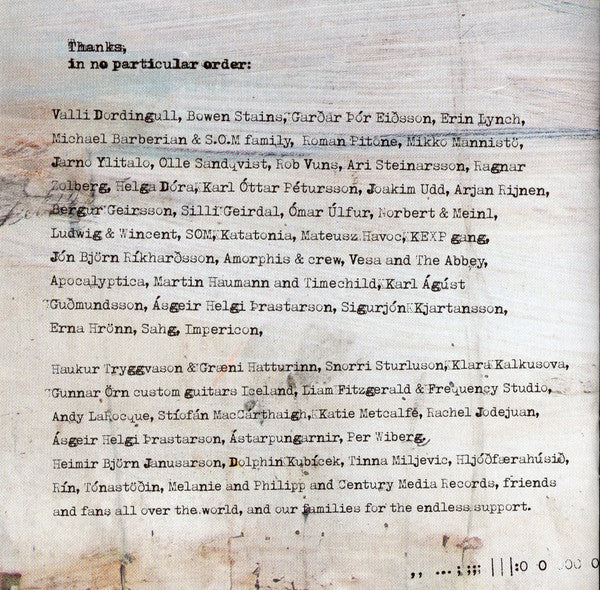 Thanks,
in no particular order:
Valli Dordingull, Bowen Stains, Garðar Þór Eiðsson, Erin Lynch,
Michael Barberian & S.O.M family, Roman Pitone, Mikko Mannistö,
Jarno Ylitalo, Olle Sandqvist, Rob Vuns, Ari Steinarsson, Ragnar
Zolberg, Helga Dóra, Karl Óttar Pétursson, Joakim Udd, Arjan Rijnen,
Bergur Geirsson, Silli Geirdal, Ómar Úlfur, Norbert & Meinl,
Ludwig & Wincent, SOM, Katatonia, Mateusz Havoc, KEXP gang,
Jón Björn Ríkharðsson, Amorphis & crew, Vesa and The Abbey,
Apocalyptica, Martin Haumann and Timechild, Karl Ágúst
Guðmundsson, Ásgeir Helgi Þrastarson, Sigurjón Kjartansson,
Erna Hrönn, Sahg, Impericon,
Haukur Tryggvason & Græni Hatturinn, Snorri Sturluson, Klara Kalkusova,
Gunnar Örn custom guitars Iceland, Liam Fitzgerald & Frequency Studio,
Andy LaRocque, Stíofán MacCarthaigh, Katie Metcalfe, Rachel Jodejuan,
Ásgeir Helgi Þrastarson, Ástarpungarnir, Per Wiberg,
Heimir Björn Janusarson, Dolphin Kubícek, Tinna Miljevic, Hljóðfærahúsið,
Rín, Tónastöðin, Melanie and Philipp and Century Media Records, friends
and fans all over the world, and our families for the endless support.